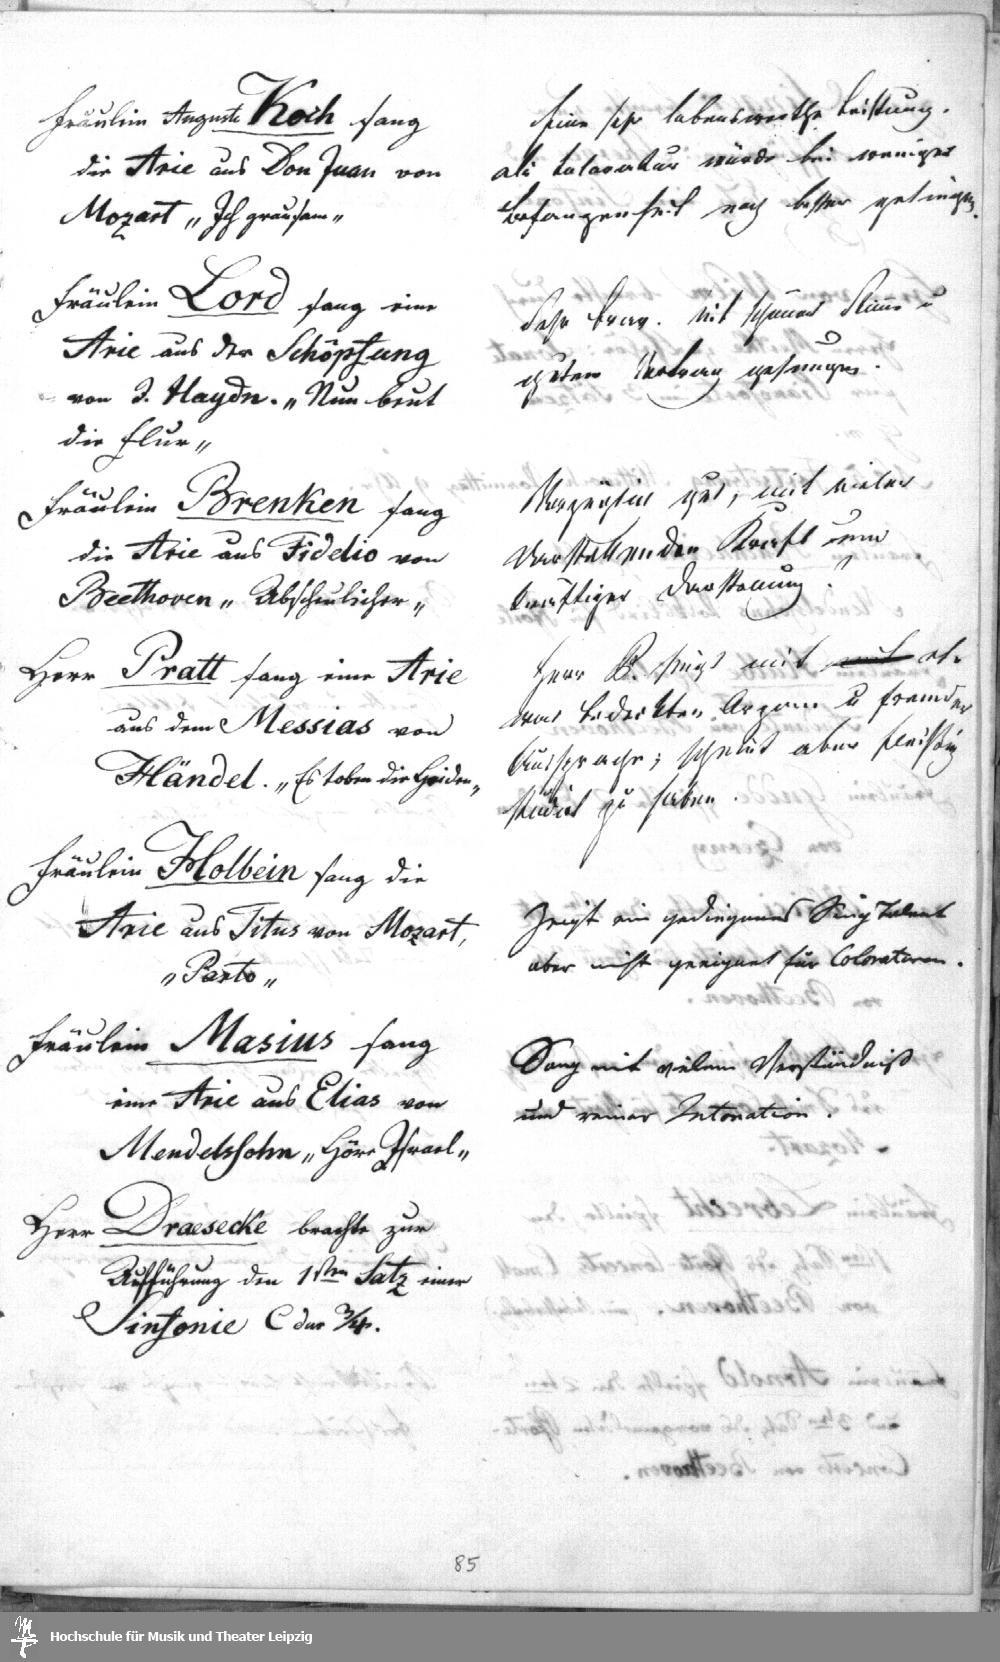 Fräulein Auguste Koch sang
die Arie aus Don Juan von
Mozart „Ich grausam„
Eine sehr lobenswerthe Leistung.
Die Coloratur würde bei weniger
Befangenheit noch besser gelingen.
Fräulein Lord sang eine
Arie aus der Schöpfung
von J. Haydn. „Nun beut
die Flur„
Sehr brav. Mit schöner Stimme u
gutem Vortrag gesungen.
Fräulein Brenken sang
die Arie aus Fidelio von
Beethoven „Abscheulicher„
Vorzüglich gut, mit vieler
Kraft und
kräftiger Darstellung
Herr Pratt sang eine Arie
aus dem Messias von
Händel. „Es toben die Heiden„
Herr P. singt mit et-
was bedecktem Organ u fremder
Aussprache; scheint aber fleißig
studirt zu haben.
Fräulein Holbein sang die
Arie aus Titus von Mozart,
„Parto„
Zeigt ein gediegenes Sing Talent
aber nicht geeignet für Coloraturen.
Fräulein Masius sang
eine Arie aus Elias von
Mendelssohn „Höre Israel„
Sang mit vielem Verständniß
und reiner Intonation.
Herr Draesecke brachte zur
Aufführung den 1sten Satz einer
Sinfonie C dur 3/4.
85
Hochschule für Musik und Theater Leipzig